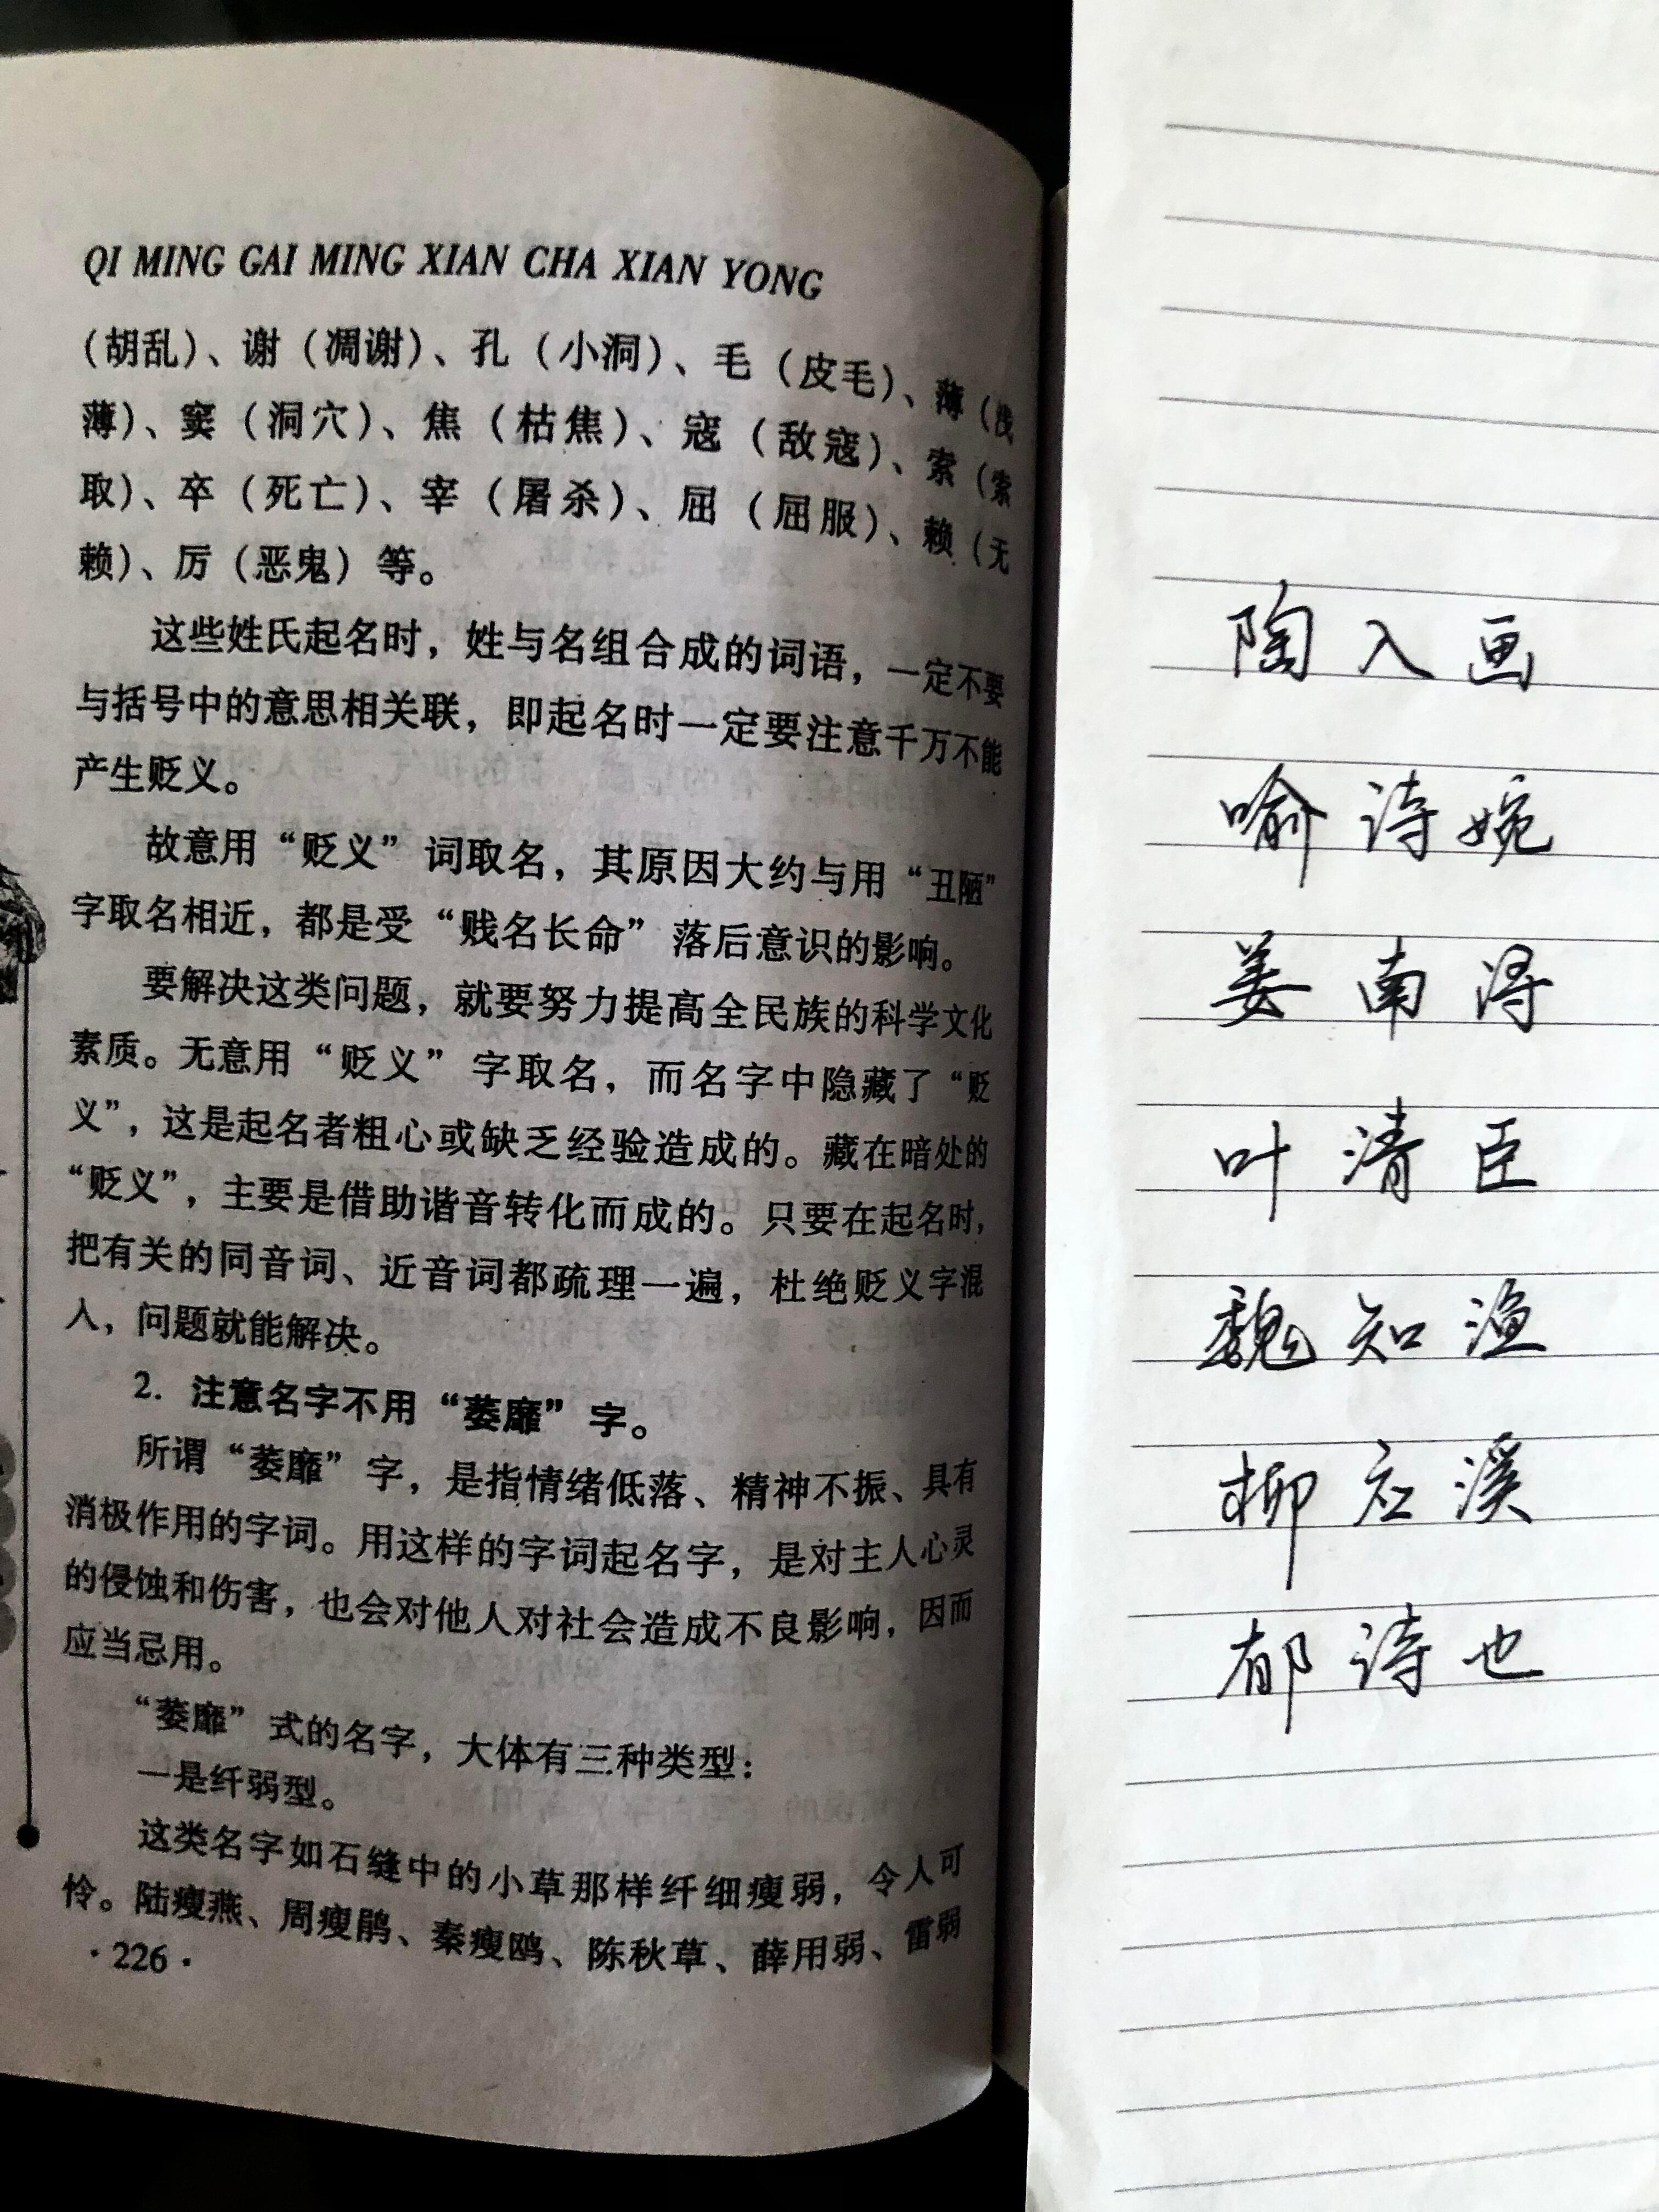 QI MING GAI MING XIAN CHA XIAN YONG
（胡乱）、谢（凋谢）、孔（小洞）、毛（皮毛）、薄（浅
薄）、窦（洞穴）、焦（枯焦）、寇（敌寇）、索（索
取）、卒（死亡）、宰（屠杀）、屈（屈服）、赖（无
赖）、厉（恶鬼）等。
这些姓氏起名时，姓与名组合成的词语，一定不要
与括号中的意思相关联，即起名时一定要注意千万不能
产生贬义。
故意用“贬义”词取名，其原因大约与用“丑陋”
字取名相近，都是受“贱名长命”落后意识的影响。
要解决这类问题，就要努力提高全民族的科学文化
素质。无意用“贬义”字取名，而名字中隐藏了“贬
义”，这是起名者粗心或缺乏经验造成的。藏在暗处的
“贬义”，主要是借助谐音转化而成的。只要在起名时，
把有关的同音词、近音词都疏理一遍，杜绝贬义字混
入，问题就能解决。
2. 注意名字不用“萎靡”字。
所谓“萎靡”字，是指情绪低落、精神不振、具有
消极作用的字词。用这样的字词起名字，是对主人心灵
的侵蚀和伤害，也会对他人对社会造成不良影响，因而
应当忌用。
“萎靡”式的名字，大体有三种类型：
一是纤弱型。
这类名字如石缝中的小草那样纤细瘦弱，令人可
怜。陆瘦燕、周瘦鹃、秦瘦鸥、陈秋草、薛用弱、雷弱
·226·
陶入画
喻诗婉
姜南浔
叶清臣
魏知渔
柳应溪
郁诗也